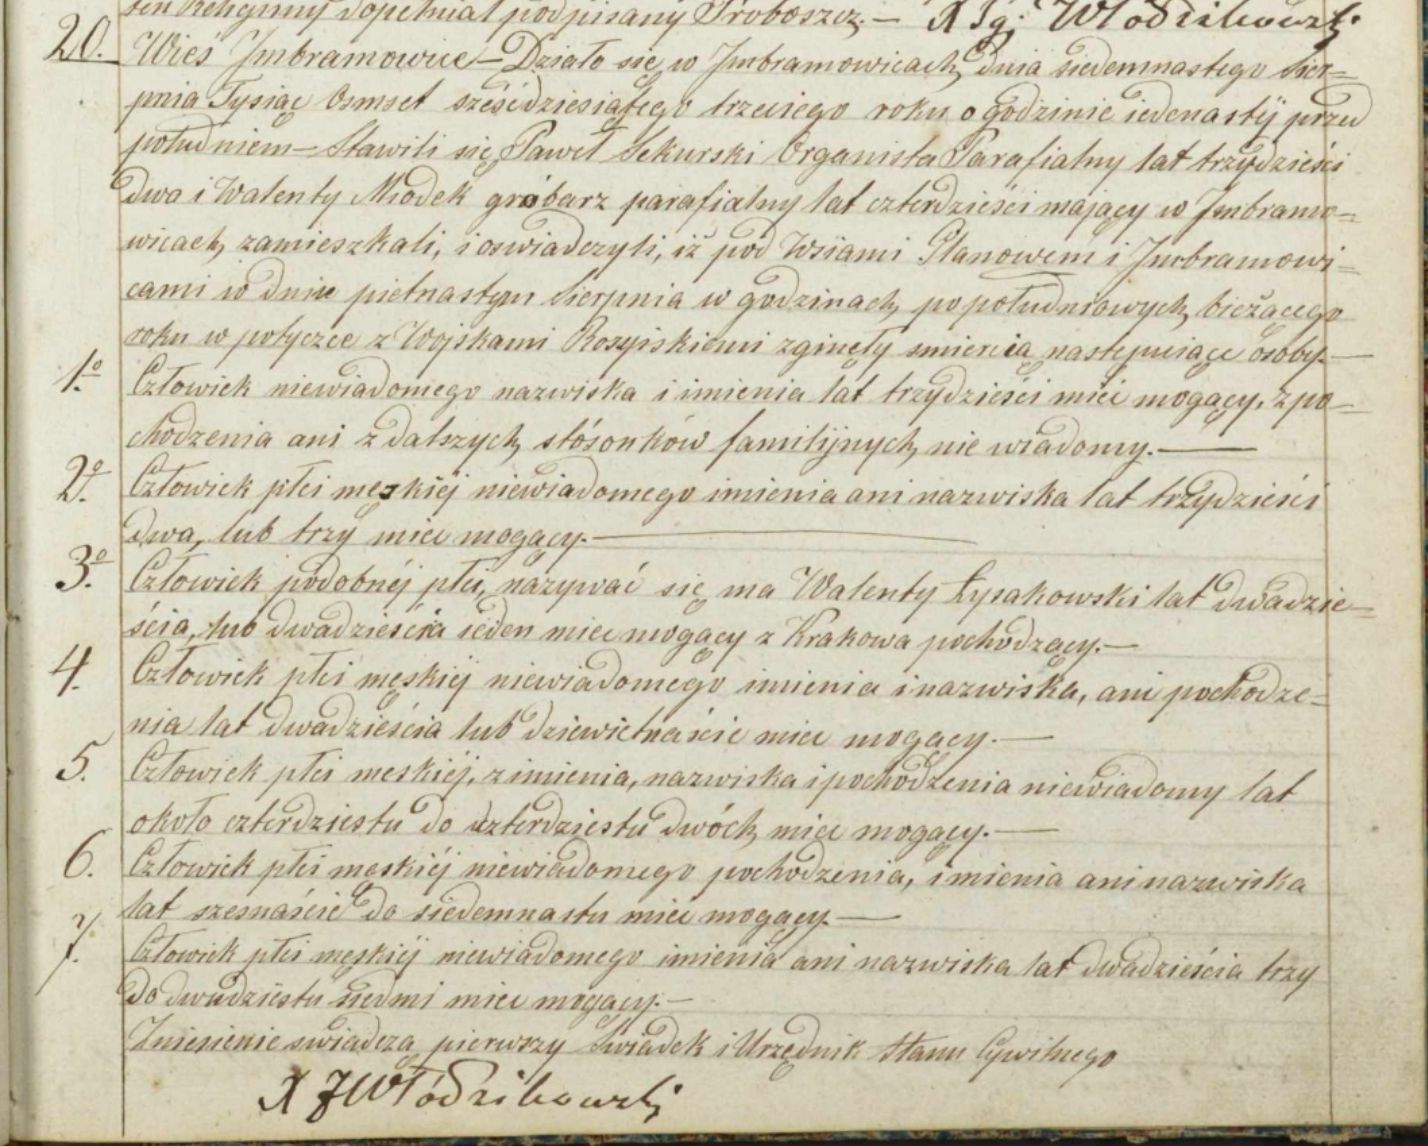 ten Religijny dopełniał podpisany Proboszcz.— X Ig: Włodzikowski
20. Wieś Jmbramowice — Działo się w Jmbramowicach, dnia siedemnastego Sier=
pnia Tysiąc Osmset sześcdziesiątego trzeciego roku o godzinie iedenastÿ przed
południem — Stawili się Paweł Sekurski Organista Parafialny lat trzydzieści
dwa i Walenty Miodek grábarz parafialny lat czterdzieści maiący w Jmbramo=
wicach, zamieszkali, i oswiadczyli, iż pod Wsiami Glanowem i Jmbramowi=
cami w dniu pietnastym Sierpnia w godzinach, popołudniowych, bieżącego
roku w potyczce z Wojskami Rossyiskiemi zginęły smiercią nastepuiące osoby.—
1.o Człowiek niewiadomego nazwiska i imienia lat trzydzieści mieć mogący, z po=
chodzenia ani z dalszych, stósonków familijnych, nie wiadomy.—
2.o Człowiek płci męzkiéj niewiadomego imienia ani nazwiska lat trzydzieści
dwa, lub trzy miec mogący.—
3.o Człowiek podobnéj płci, nazywać się ma Walenty Łysakowski lat dwadzie=
ścia, lub dwadzieścia ieden miec mogący z Krakowa pochodzący.—
4. Człowiek płci męskiéj niewiadomego imienia i nazwiska, ani pochodze=
nia lat dwadzieścia lub dziewietnaście miec mogący.—
5. Człowiek płci meskiéj, z imienia, nazwiska i pochodzenia niewiadomy lat
około czterdziestu do czterdziestu dwóch, miec mogący.—
6. Człowiek płci męskiéj niewiadomego pochodzenia, imienia ani nazwiska
lat szesnaście do siedemnastu miec mogący.—
7. Człowiek płci męskiéj niewiadomego imienia ani nazwiska lat dwadzieścia trzy
do dwudziestu siedmi miec mogący.—
Zniesienie swiadczą pierwszy Swiadek i Urzędnik Stanu Cywilnego
X J Włódzikowski